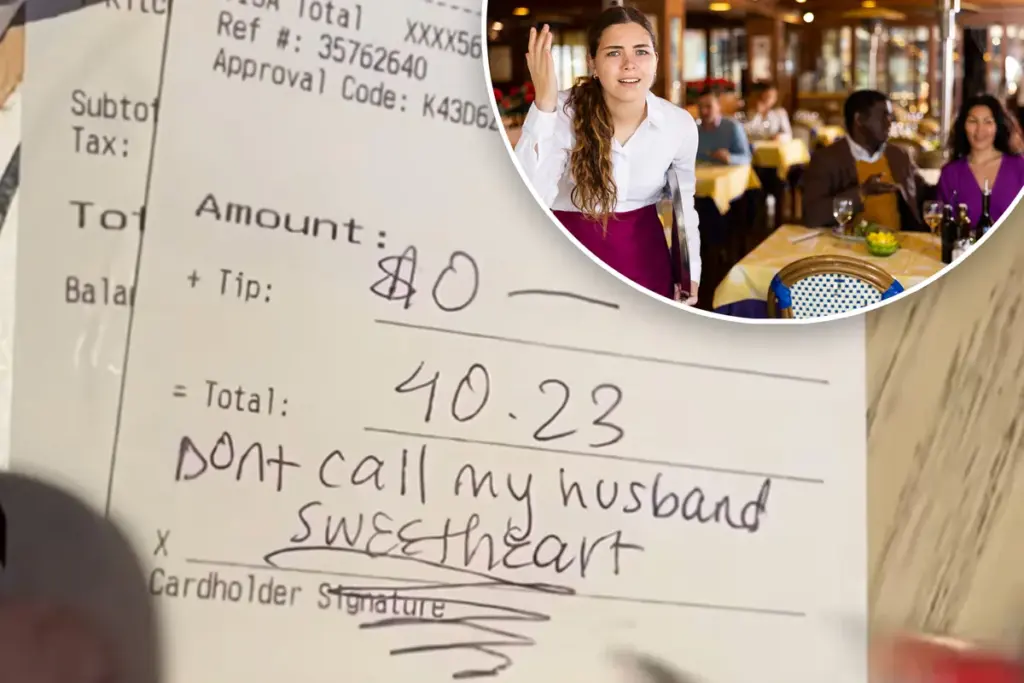 Total XXXX56
Ref #: 35762640
Approval Code: K43D6
Subtot
Tax:
Tot
Balar
Amount:
+ Tip: $0 —
= Total: 40.23
Dont call my husband
SWEEtheart
X
Cardholder Signature